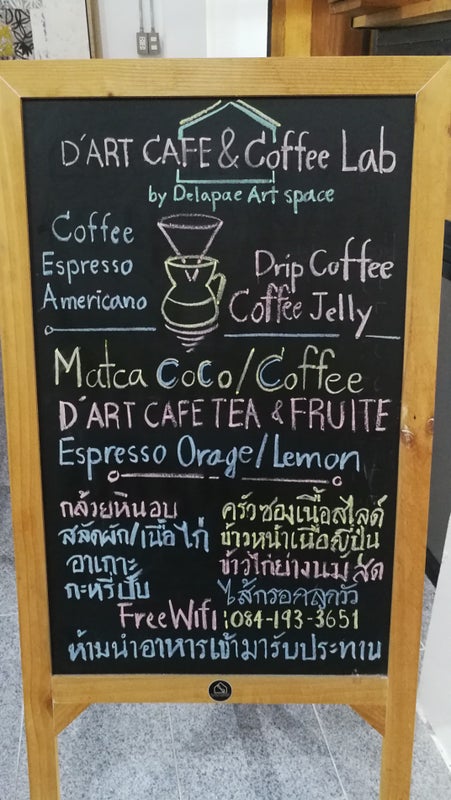 D'ART CAFE & Coffee Lab
by Delapae Art space
Coffee
Espresso
Americano
Drip Coffee
Coffee Jelly
Matca CoCo/Coffee
D'ART CAFE TEA & FRUITE
Espresso Orage/Lemon
กล้วยหินอบ
สลัดผัก/เนื้อไก่
อาเกาะ
กะหรี่ปั๊บ
ครัวซองเนื้อสไลด์
ข้าวหน้าเนื้อญี่ปุ่น
ข้าวไก่ย่างนมสด
ไส้กรอกลูกวัว
Free Wifi : 084-193-3651
ห้ามนำอาหารเข้ามารับประทาน